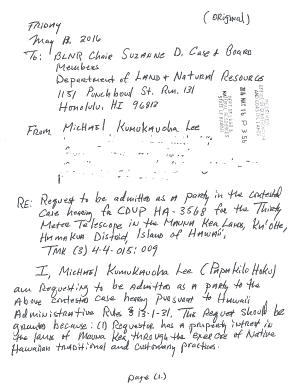 (Original)
FRIDAY
May 13, 2016
To: BLNR Chair Suzanne D. Case & Board
Members
Department of Land & Natural Resources
1151 Punchbowl St. Rm. 131
Honolulu, HI 96813
From Michael Kumukauoha Lee
RE: Request to be admitted as a party in the contested
Case hearing for CDUP HA-3568 for the Thirty
Meter Telescope in the Mauna Kea Lands, Ka'ohe,
Hamakua District, Island of Hawaii,
TMK (3) 4-4-015:009
I, Michael Kumukauoha Lee (Papakilo Hoku)
am Requesting to be Admitted as a party to the
Above contested case hearing pursuant to Hawaii
Administrative Rules § 13-1-31. This Request should be
granted because: (1) Requestor has a property interest in
the lands of Mauna Kea through the exercise of Native
Hawaiian traditional and customary practices.
page (1.)